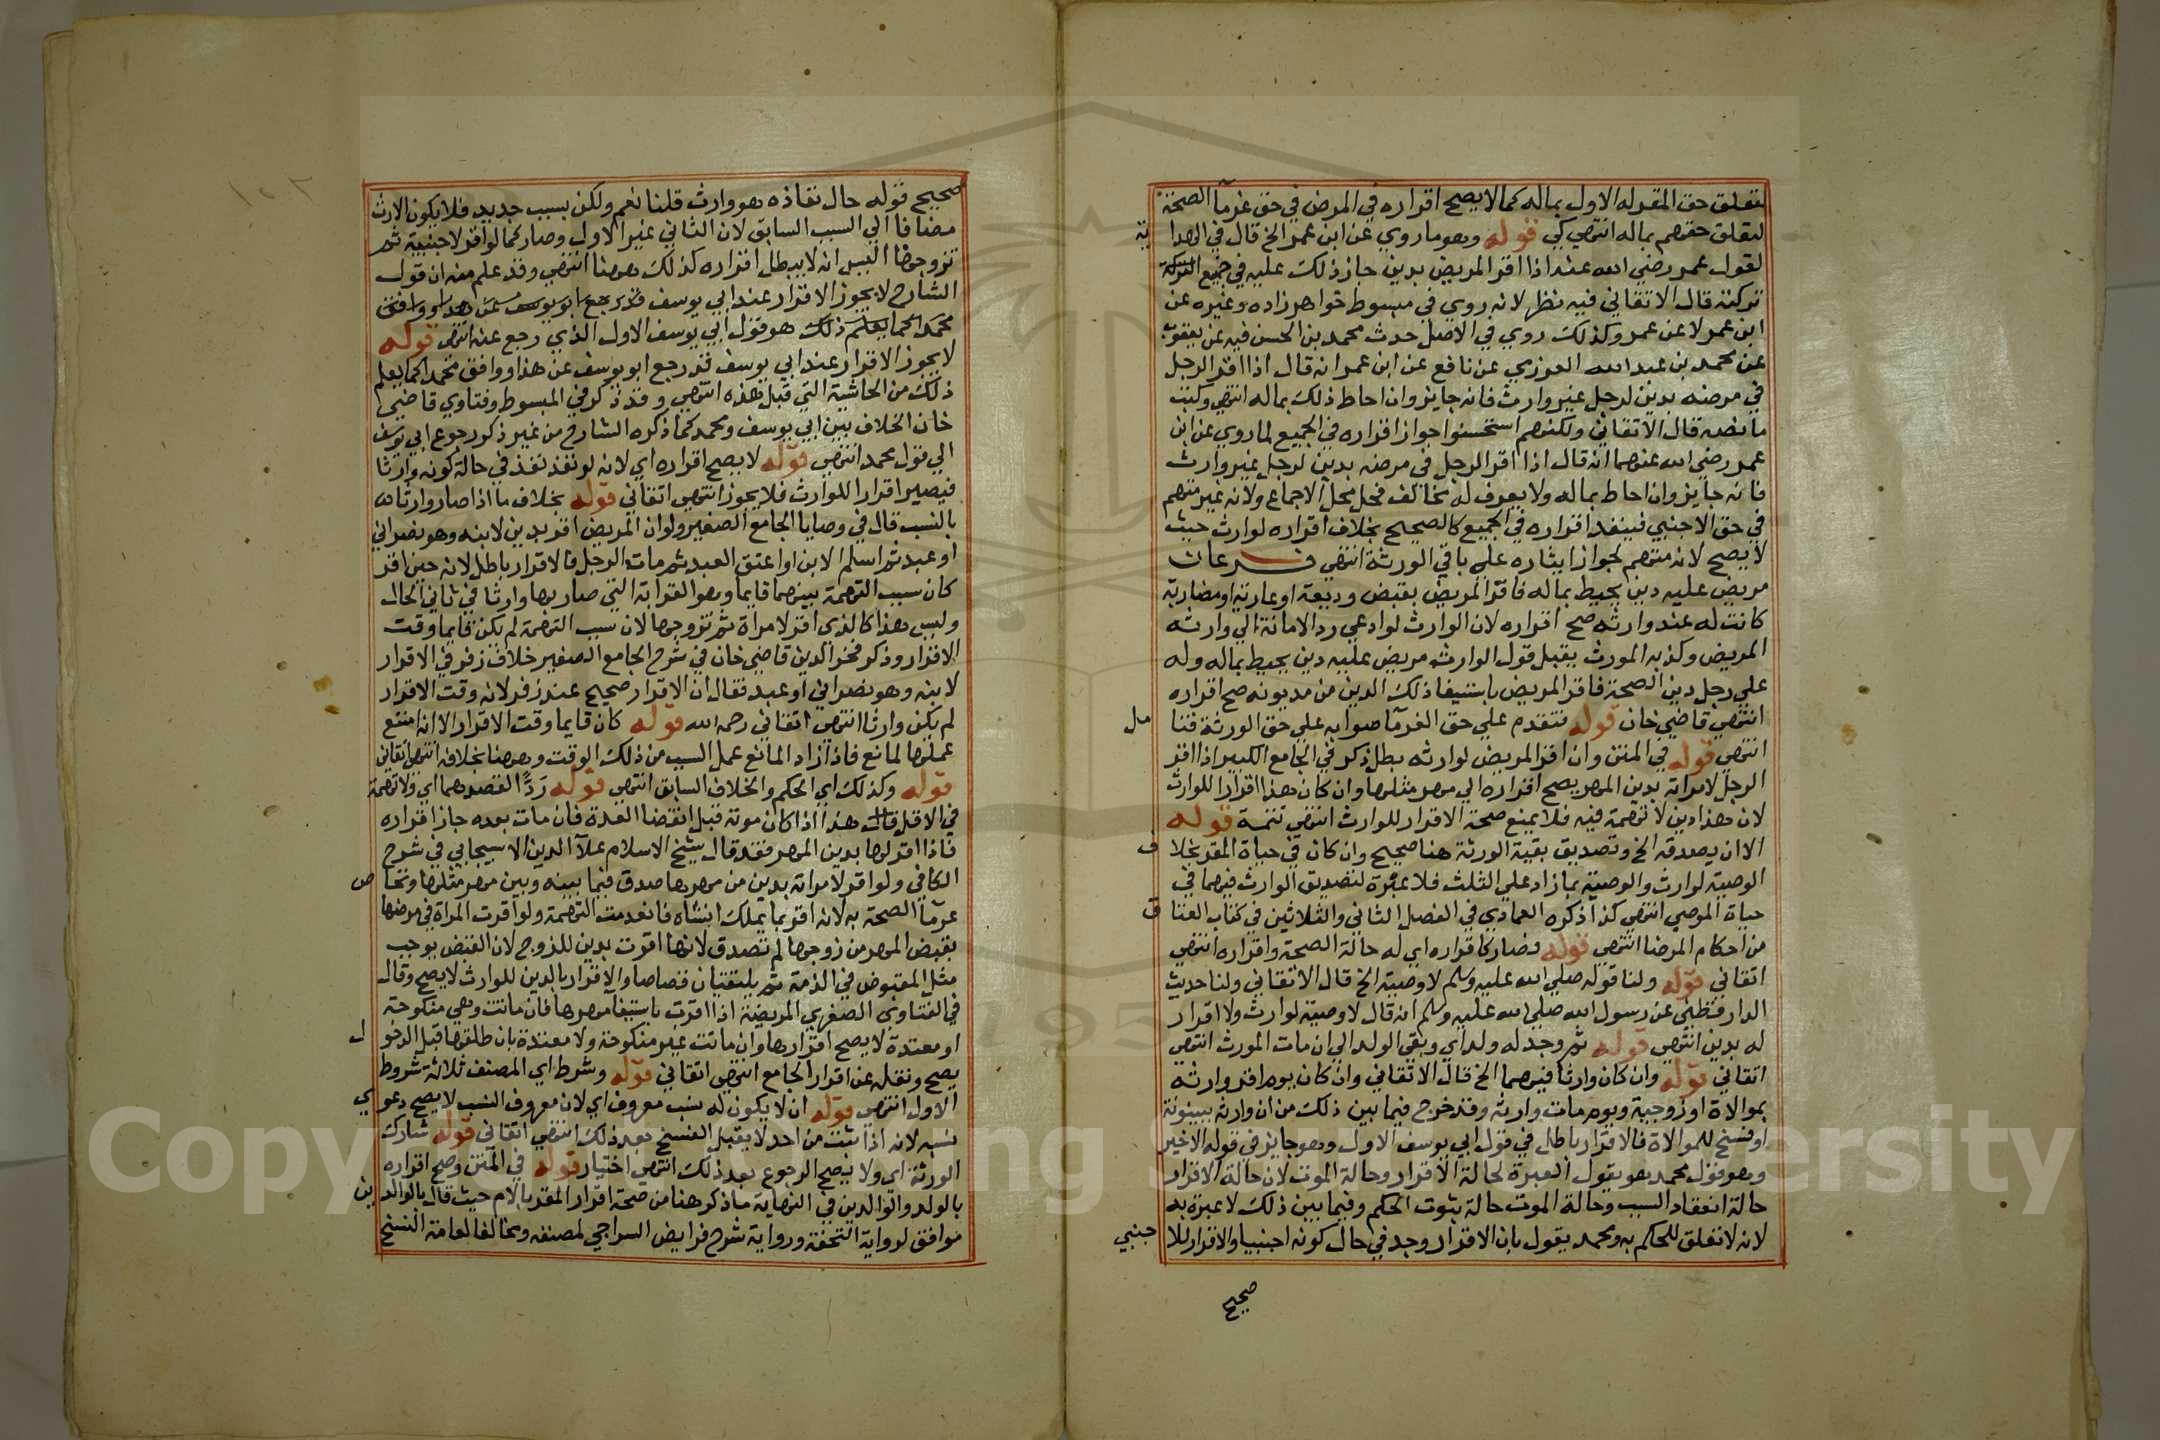 لتعلق حق المقر له الاول بماله كما لا يصح اقراره في المرض في حق غرماء الصحة
لتعلق حقهم بماله انتهى كي قوله وهو ما روي عن ابن عمر الخ قال في الهدا ية
لقول عمر رضي الله عنه اذا اقر المريض بدين جاز ذلك عليه في جميع التركة
تركته قال الاتقاني فيه نظر لانه روي في مبسوط خواهر زاده وغيره عن
ابن عمر لا عن عمر وكذلك روي في الاصل حدث محمد بن الحسن فيه عن يعقوب
عن محمد بن عبد الله العرزمي عن نافع عن ابن عمر انه قال اذا اقر الرجل
في مرضه بدين لرجل غير وارث فانه جايز وان احاط ذلك بماله انتهى وكتب
ما نصه قال الاتقاني ولكنهم استحسنوا جواز اقراره في الجميع لما روي عن ابن
عمر رضي الله عنهما انه قال اذا اقر الرجل في مرضه بدين لرجل غير وارث
فانه جايز وان احاط بماله ولا يعرف له مخالف فحل محل الاجماع ولانه غير متهم
في حق الاجنبي فينفذ اقراره في الجميع كالصحيح بخلاف اقراره لوارث حيث
لا يصح لانه متهم لجواز ايثاره على باقي الورثة انتهى فرعان
مريض عليه دين يحيط بماله فاقر المريض بقبض وديعة او عارية او مضاربة
كانت له عند وارثه صح اقراره لان الوارث لو ادعى رد الامانة الى وارثه
المريض وكذبه المورث يقبل قول الوارث مريض عليه دين يحيط بماله وله
على رجل دين الصحة فاقر المريض باستيفا ذلك الدين من مديونه صح اقراره
انتهى قاضي خان قوله فتقدم على حق الغرما صوابه على حق الورثة فتا مل
انتهى قوله في المتن وان اقر المريض لوارثه بطل ذكر في الجامع الكبير اذا اقر
الرجل لامراته بدين المهر يصح اقراره الى مهر مثلها وان كان هذا اقرارا للوارث
لان هذا دين لا تهمة فيه فلا يمنع صحة الاقرار للوارث انتهى تتمة قوله
الا ان يصدقه الخ وتصديق بقية الورثة هنا صحيح وان كان في حياة المقر بخلا ف
الوصية لوارث والوصية بما زاد على الثلث فلا عبرة لتصديق الوارث فيهما في
حياة الموصي انتهى كذا ذكره العمادي في الفصل الثاني والثلاثين في كتاب العتا ق
من احكام المرضى انتهى قوله فصار كاقراره اي له حالة الصحة واقراره انتهى
اتقاني قوله ولنا قوله صلى الله عليه وسلم لا وصية الخ قال الاتقاني ولنا حديث
الدارقطني عن رسول الله صلى الله عليه وسلم انه قال لا وصية لوارث ولا اقرار
له بدين انتهى قوله ثم وجد له ولد اي وبقي الولد الى ان مات المورث انتهى
اتقاني قوله وان كان وارثا فيهما الخ قال الاتقاني وان كان يوم اقر وارثه
بموالاة او زوجية ويوم مات وارثه وقد خرج فيما بين ذلك من ان وارثه ببينونة
او فسخ للموالاة فالاقرار باطل في قول ابي يوسف الاول وهو جايز في قوله الاخير
وهو قول محمد هو يقول العبرة لحالة الاقرار وحالة الموت لان حالة الاقرار
حالة انعقاد السبب وحالة الموت حالة ثبوت الحكم وفيما بين ذلك لا عبرة به
لانه لا تعلق للحكم به ومحمد يقول بان الاقرار وجد في حال كونه اجنبيا والاقرار للا جنبي
صحيح
صحيح قوله حال نفاذه هو وارث قلنا نعم ولكن بسبب جديد فلا يكون الارث
مضافا الى السبب السابق لان الثاني غير الاول وصار كما لو اقر لاجنبية ثم
تزوجها اليس انه لا يبطل اقراره كذلك ههنا انتهى وقد علم منه ان قول
الشارح لا يجوز الاقرار عند ابي يوسف قد رجع ابو يوسف عن هذا ووافق
محمدا كما يعلم ذلك هو قول ابي يوسف الاول الذي رجع عنه انتهى قوله
لا يجوز الاقرار عند ابي يوسف قد رجع ابو يوسف عن هذا ووافق محمدا كما يعلم
ذلك من الحاشية التي قبل هذه انتهى وقد ذكر في المبسوط وفتاوي قاضي
خان الخلاف بين ابي يوسف ومحمد كما ذكره الشارح من غير ذكر رجوع ابي يوسف
الى قول محمد انتهى قوله لا يصح اقراره اي لانه لو نفذ نفذ في حالة كونه وارثا
فيصير اقرارا للوارث فلا يجوز انتهى اتقاني قوله بخلاف ما اذا صار وارثا له
بالنسب قال في وصايا الجامع الصغير ولو ان المريض اقر بدين لابنه وهو نصراني
او عبد ثم اسلم الابن او اعتق العبد ثم مات الرجل فالاقرار باطل لانه حين اقر
كان سبب التهمة بينهما قايما وهو القرابة التي صار بها وارثا في ثاني الحال
وليس هذا كالذي اقر لامراة ثم تزوجها لان سبب التهمة لم يكن قايما وقت
الاقرار وذكر فخر الدين قاضي خان في شرح الجامع الصغير خلاف زفر في الاقرار
لابنه وهو نصراني او عبد فقال ان الاقرار صحيح عند زفر لانه وقت الاقرار
لم يكن وارثا انتهى اتقاني رحمه الله قوله كان قايما وقت الاقرار الا انه امتنع
عملها لمانع فاذا زاد المانع عمل السبب من ذلك الوقت وههنا بخلافه انتهى اتقاني
قوله وكذلك اي الحكم والخلاف السابق انتهى قوله ردا لقصدهما اي ولا تهمة
في الاقل قال هذا اذا كان موته قبل انقضا العدة فان مات بعده جاز اقراره
فاذا اقر لها بدين المهر فقد قال شيخ الاسلام علا الدين الاسبيجابي في شرح
الكافي ولو اقر لامراته بدين من مهرها صدق فيما بينه وبين مهر مثلها وتحا ص
غرما الصحة به لانه اقر بما يملك انشاه فانعدمت التهمة ولو اقرت المراة في مرضها
بقبض المهر من زوجها لم تصدق لانها اقرت بدين للزوج لان القبض يوجب
مثل المقبوض في الذمة ثم يلتقيان قصاصا والاقرار بالدين للوارث لا يصح وقال
في الفتاوى الصغرى المريضة اذا اقرت باستيفا مهرها فان ماتت وهي منكوحة
او معتدة لا يصح اقرارها وان ماتت غير منكوحة ولا معتدة بان طلقها قبل الدخو ل
يصح ونقله عن اقرار الجامع انتهى اتقاني قوله وشرط اي المصنف ثلاثة شروط
الاول انتهى قوله ان لا يكون له نسب معروف اي لان معروف النسب لا يصح دعو ى
نسبه لانه اذا ثبت من احد لا يقبل الفسخ بعد ذلك انتهى اتقاني قوله شارك
الورثة اي ولا يصح الرجوع بعد ذلك انتهى اختيار قوله في المتن وصح اقراره
بالولد والوالدين في النهاية ما ذكر هنا من صحة اقرار المقر بالام حيث قال بالوالد ين
موافق لرواية التحفة ورواية شرح فرايض السراجي لمصنفه ومخالف لعامة النسخ
١٠٢
Copyright © King Saud University
1957